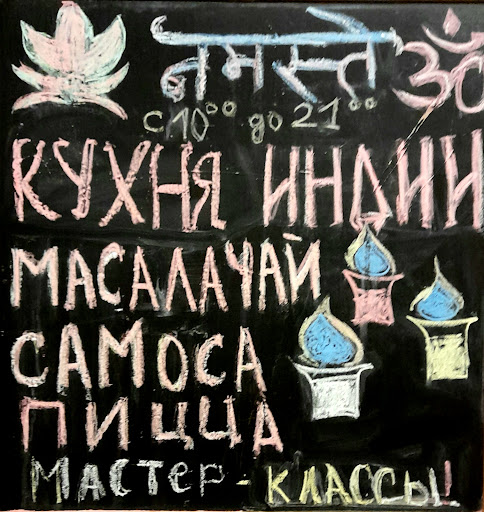 नमस्ते ॐ
с 10⁰⁰ до 21⁰⁰
КУХНЯ ИНДИИ
МАСАЛАЧАЙ
САМОСА
ПИЦЦА
МАСТЕР-КЛАССЫ!